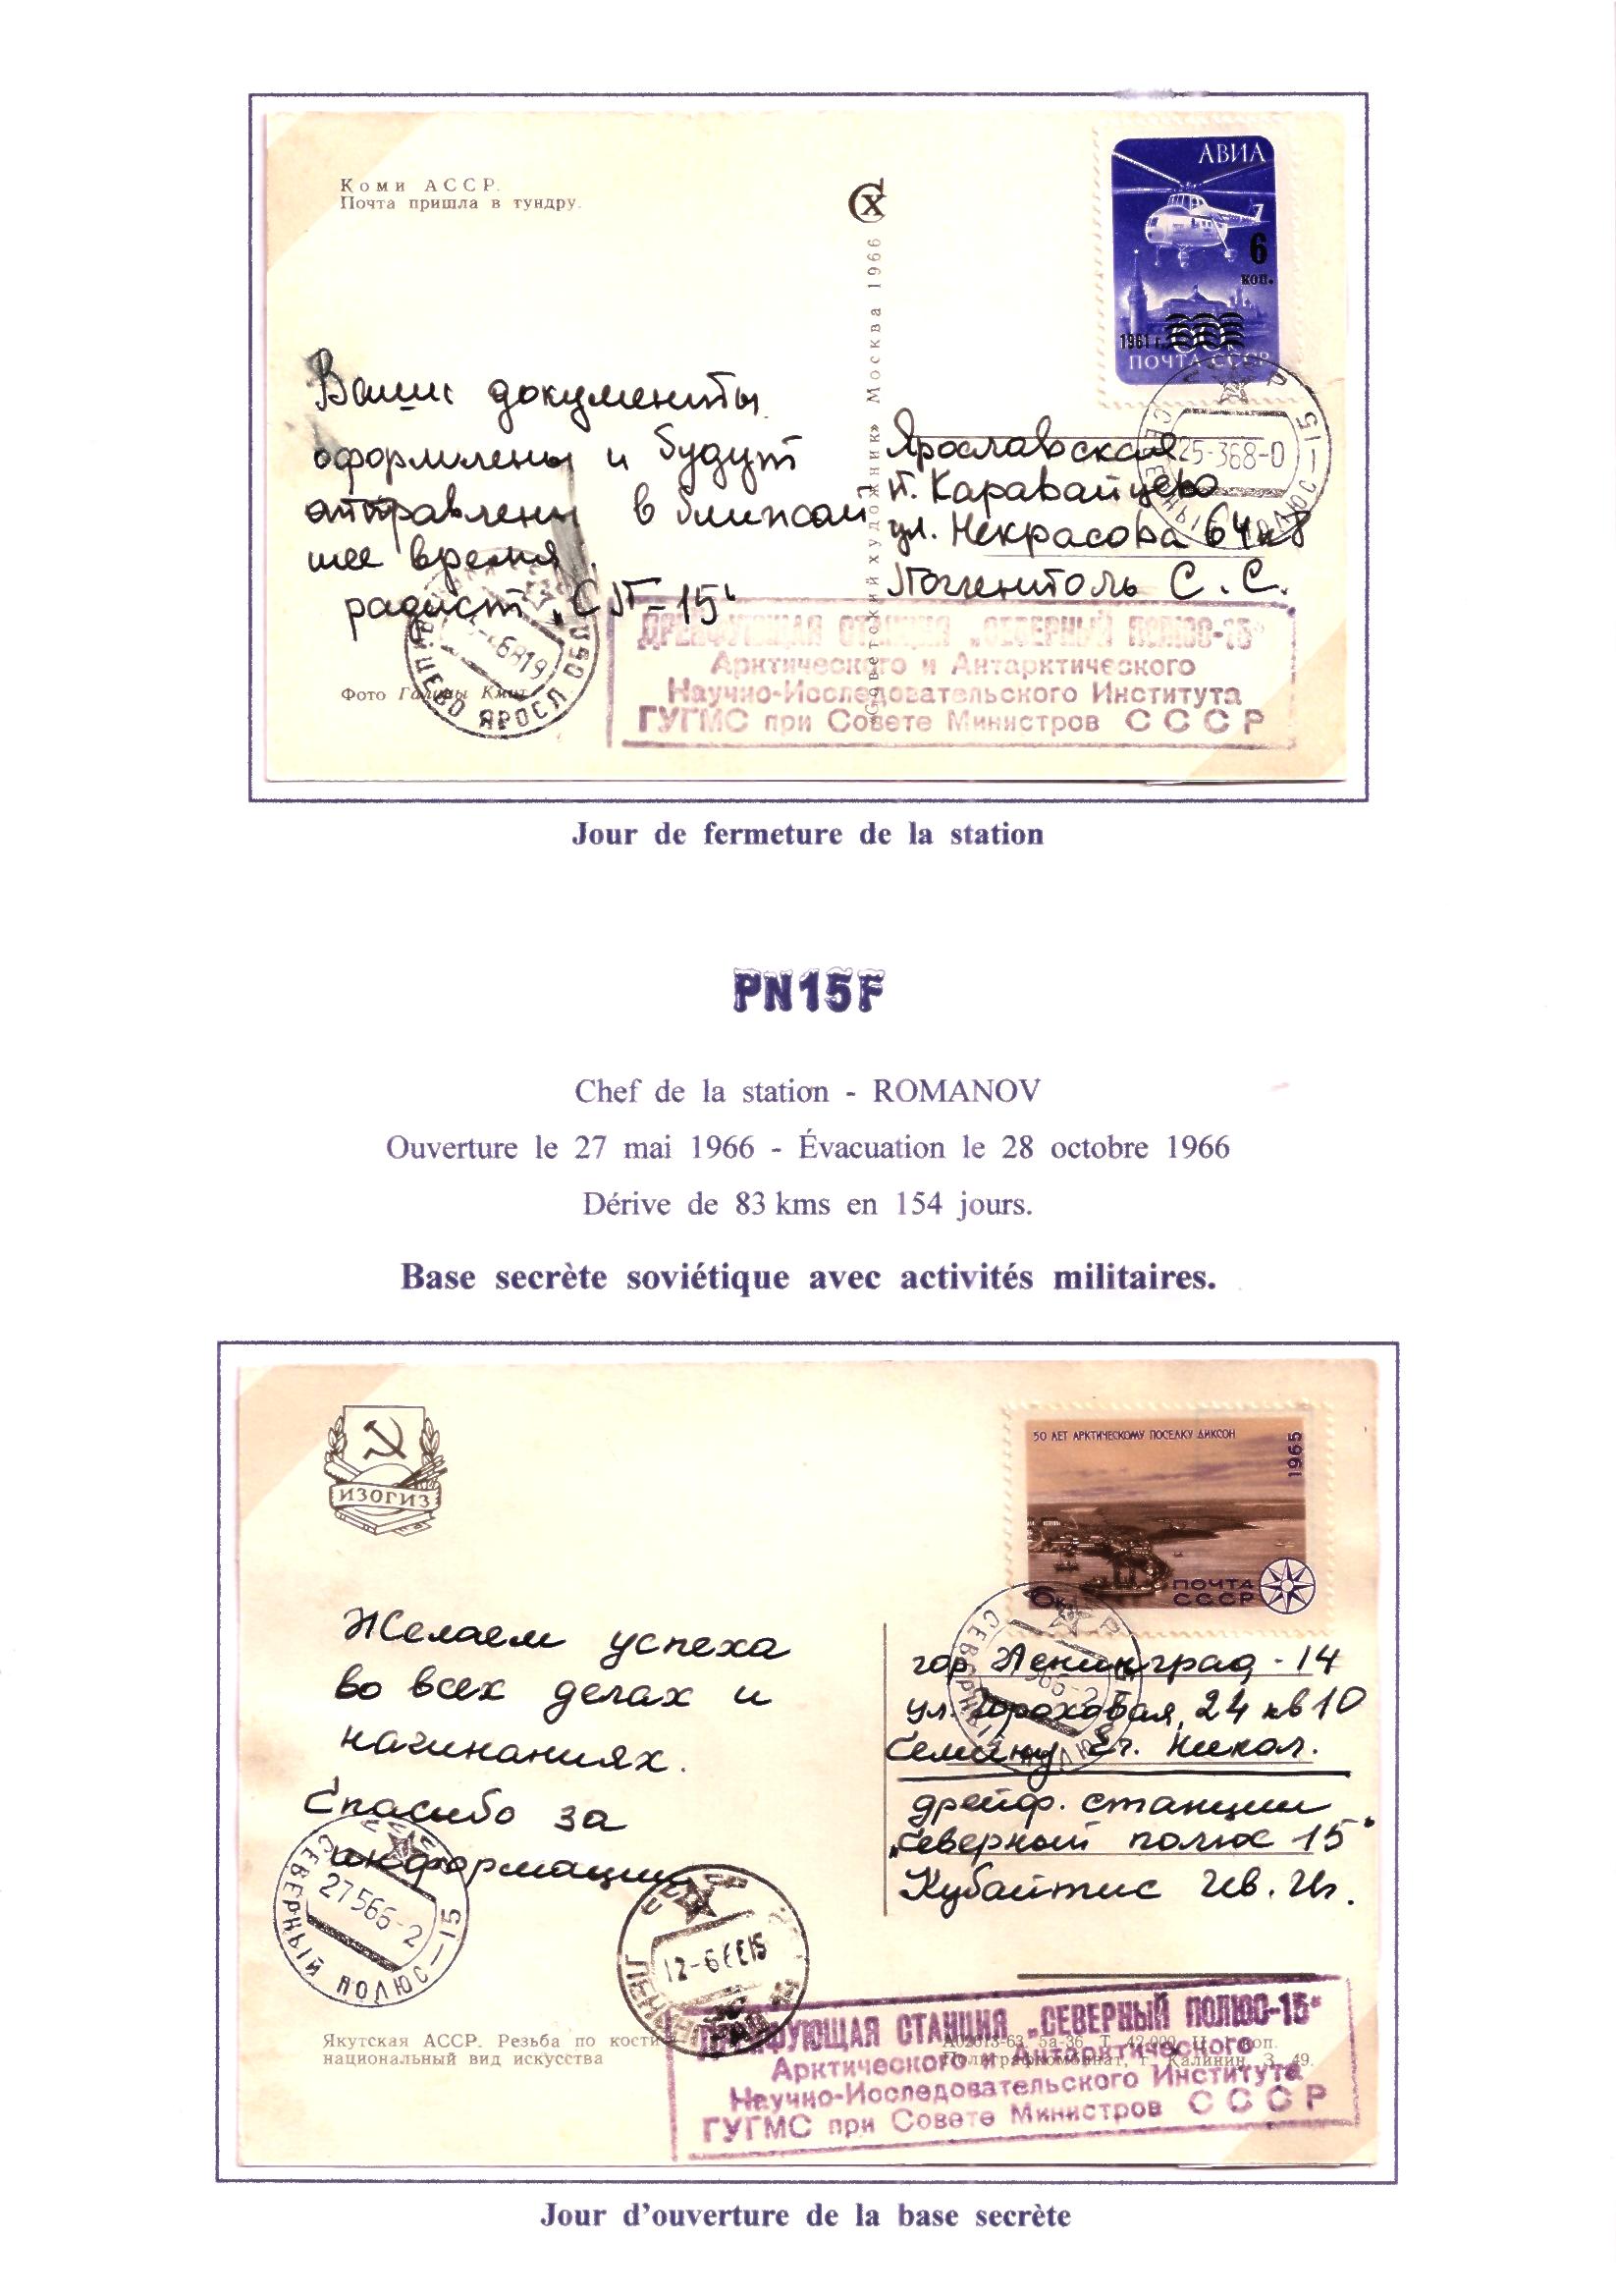 Коми АССР.
Почта пришла в тундру.
АВИА
6
коп.
1961 г.
ПОЧТА СССР
«Советский художник» Москва 1966
Ваши документы
оформлены и будут
отправлены в ближай
шее время.
радист „СП-15“
Ярославская
п. Каравайцево
ул. Некрасова 64 к 8
С. С.
25-368-0
СЕВЕРНЫЙ ПОЛЮС-15
6819
ЯРОСЛ ОБЛ
Фото Галины Кмит
ДРЕЙФУЮЩАЯ СТАНЦИЯ „СЕВЕРНЫЙ ПОЛЮС-15“
Арктического и Антарктического
Научно-Исследовательского Института
ГУГМС при Совете Министров СССР
Jour de fermeture de la station
PN15F
Chef de la station - ROMANOV
Ouverture le 27 mai 1966 - Évacuation le 28 octobre 1966
Dérive de 83 kms en 154 jours.
Base secrète soviétique avec activités militaires.
ИЗОГИЗ
50 ЛЕТ АРКТИЧЕСКОМУ ПОСЕЛКУ ДИКСОН
1965
ПОЧТА
СССР
6к
Желаем успеха
во всех делах и
начинаниях.
Спасибо за
информацию
гор Ленинград-14
ул. Гороховая, 24 кв 10
Семину Ег. Никол.
дрейф. станции
„Северный полюс 15“
Кубайтис Ив. Ив.
27566-2
СЕВЕРНЫЙ ПОЛЮС-15
12-6
ЛЕНИНГРАД
Якутская АССР. Резьба по кости
национальный вид искусства
А02613-63 5а-36 Т. 42.000
Полиграфкомбинат, г. Калинин З. 49.
ДРЕЙФУЮЩАЯ СТАНЦИЯ „СЕВЕРНЫЙ ПОЛЮС-15“
Арктического и Антарктического
Научно-Исследовательского Института
ГУГМС при Совете Министров СССР
Jour d’ouverture de la base secrète